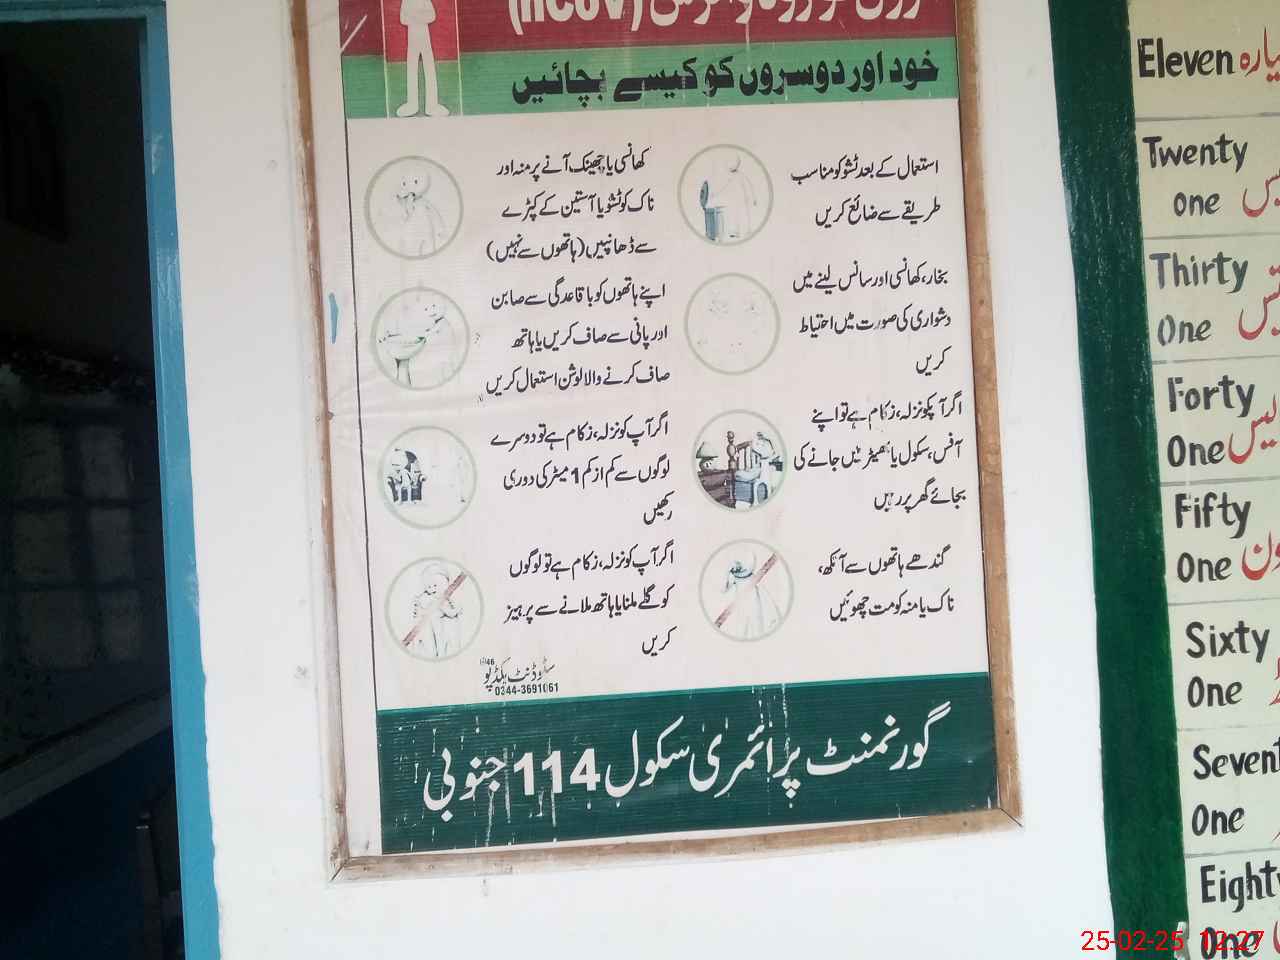 (nCoV)
خود اور دوسروں کو کیسے بچائیں
استعمال کے بعد ٹشو کو مناسب
طریقے سے ضائع کریں
کھانسی یا چھینک آنے پر منہ اور
ناک کو ٹشو یا آستین کے کپڑے
سے ڈھانپیں (ہاتھوں سے نہیں)
بخار، کھانسی اور سانس لینے میں
دشواری کی صورت میں احتیاط
کریں
اپنے ہاتھوں کو باقاعدگی سے صابن
اور پانی سے صاف کریں یا ہاتھ
صاف کرنے والا لوشن استعمال کریں
اگر آپکو نزلہ، زکام ہے تو اپنے
آفس، سکول یا بھیڑ میں جانے کی
بجائے گھر پر رہیں
اگر آپ کو نزلہ، زکام ہے تو دوسرے
لوگوں سے کم از کم 1 میٹر کی دوری
رکھیں
گندھے ہاتھوں سے آنکھ،
ناک یا منہ کو مت چھوئیں
اگر آپ کو نزلہ، زکام ہے تو لوگوں
کو گلے ملنا یا ہاتھ ملانے سے پرہیز
کریں
سٹوڈنٹ بکڈپو
0344-3691061
گورنمنٹ پرائمری سکول 114 جنوبی
Eleven
Twenty
one
Thirty
One
Forty
One
Fifty
One
Sixty
One
One
One
25-02-25 12:27